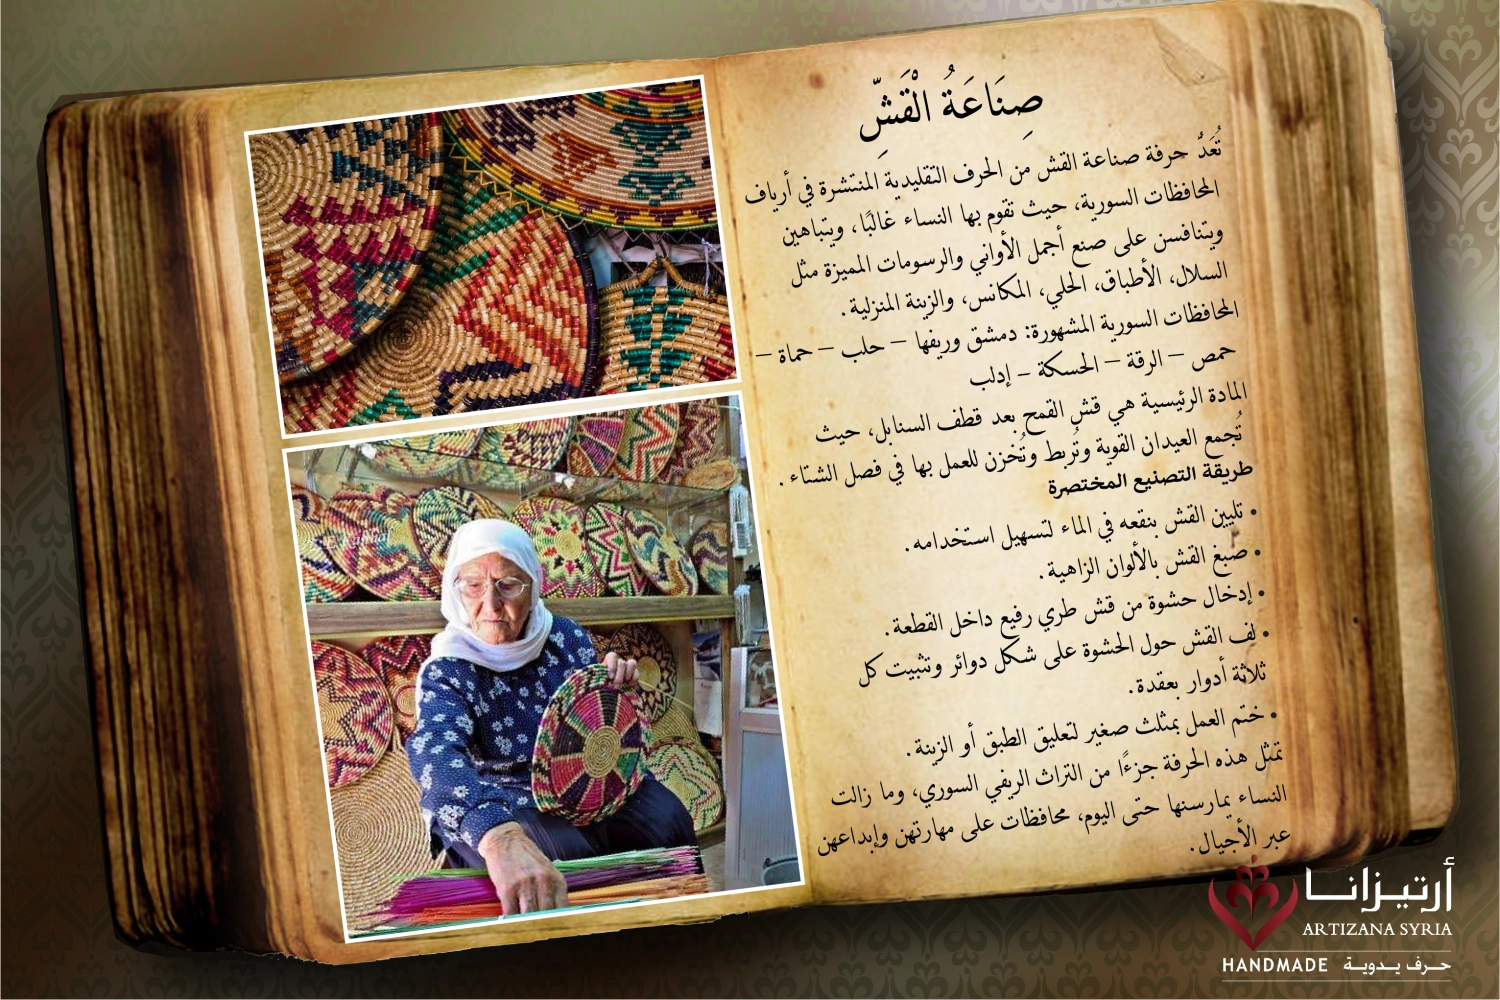 صِنَاعَةُ الْقَشِّ
تُعَدُّ حرفة صناعة القش من الحرف التقليدية المنتشرة في أرياف
المحافظات السورية، حيث تقوم بها النساء غالبًا، ويتباهين
ويتنافسن على صنع أجمل الأواني والرسومات المميزة مثل
السلال، الأطباق، الحلي، المكانس، والزينة المنزلية.
المحافظات السورية المشهورة: دمشق وريفها – حلب – حماة –
حمص – الرقة – الحسكة – إدلب
المادة الرئيسية هي قش القمح بعد قطف السنابل، حيث
تُجمع العيدان القوية وتُربط وتُخزن للعمل بها في فصل الشتاء.
طريقة التصنيع المختصرة
• تليين القش بنقعه في الماء لتسهيل استخدامه.
• صبغ القش بالألوان الزاهية.
• إدخال حشوة من قش طري رفيع داخل القطعة.
• لف القش حول الحشوة على شكل دوائر وتثبيت كل
ثلاثة أدوار بعقدة.
• ختم العمل بمثلث صغير لتعليق الطبق أو الزينة.
تمثل هذه الحرفة جزءًا من التراث الريفي السوري، وما زالت
النساء يمارسنها حتى اليوم، محافظات على مهارتهن وإبداعهن
عبر الأجيال.
أرتيزانا
ARTIZANA SYRIA
HANDMADE حرف يدوية